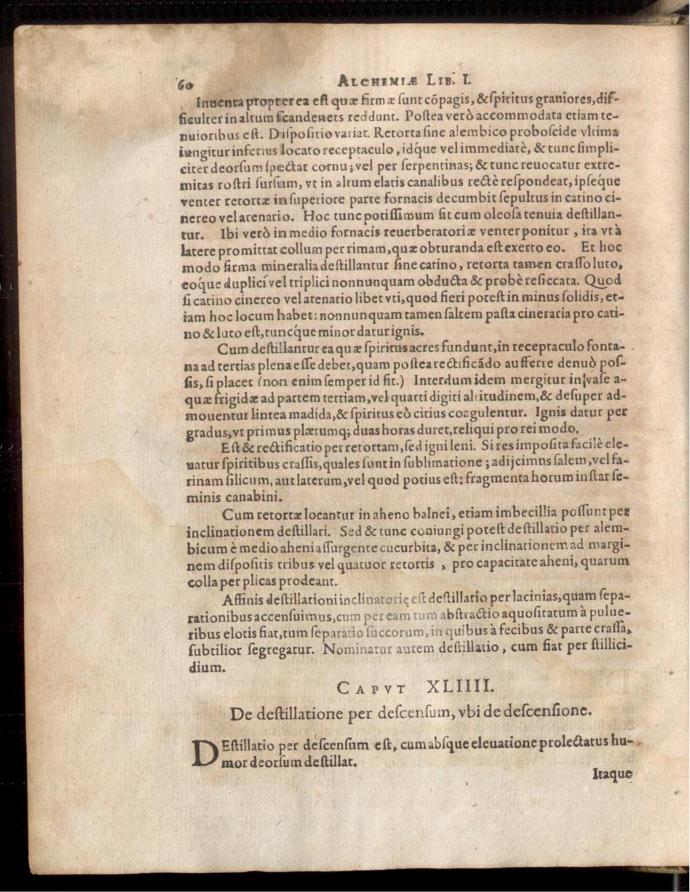 60 ALCHEMIÆ LIB. I.
Inuenta propterea est quæ firmæ sunt cõpagis, & spiritus grauiores, dif-
ficulter in altum scandenets reddunt. Postea verò accommodata etiam te-
nuioribus est. Dispositio variat. Retorta sine alembico proboscide vltima
iungitur inferius locato receptaculo, idq́ue vel immediatè, & tunc simpli-
citer deorsum spectat cornu; vel per serpentinas; & tunc reuocatur extre-
mitas rostri sursum, vt in altum elatis canalibus rectè respondeat, ipseque
venter retortæ in superiore parte fornacis decumbit sepultus in catino ci-
nereo vel arenario. Hoc tunc potissimum fit cum oleosa tenuia destillan-
tur. Ibi verò in medio fornacis reuerberatoriæ venter ponitur, ita vt à
latere promittat collum per rimam, quæ obturanda est exerto eo. Et hoc
modo firma mineralia destillantur sine catino, retorta tamen crasso luto,
eoq́ue duplici vel triplici nonnunquam obducta & probè resiccata. Quod
si catino cinereo vel arenario libet vti, quod fieri potest in minus solidis, et-
iam hoc locum habet: nonnunquam tamen saltem pasta cineraria pro cati-
no & luto est, tuncq́ue minor datur ignis.
Cum destillantur ea quæ spiritus acres fundunt, in receptaculo fonta-
na ad tertias plena esse debet, quam postea rectificãdo aufferre denuò pos-
sis, si placet (non enim semper id fit.) Interdum idem mergitur in vase a-
quæ frigidæ ad partem tertiam, vel quarti digiti altitudinem, & desuper ad-
mouentur lintea madida, & spiritus eò citius coagulentur. Ignis datur per
gradus, vt primus plærumq; duas horas duret, reliqui pro rei modo.
Est & rectificatio per retortam, sed igni leni. Si res imposita facilè ele-
uatur spiritibus crassis, quales sunt in sublimatione; adijcimus salem, vel fa-
rinam silicum, aut laterum, vel quod potius est; fragmenta horum instar se-
minis canabini.
Cum retortæ locantur in aheno balnei, etiam imbecillia possunt per
inclinationem destillari. Sed & tunc coniungi potest destillatio per alem-
bicum è medio aheni assurgente cucurbita, & per inclinationem ad margi-
nem dispositis tribus vel quatuor retortis, pro capacitate aheni, quarum
colla per plicas prodeant.
Affinis destillationi inclinatorię est destillatio per lacinias, quam sepa-
rationibus accensuimus, cum per eam tum abstractio aquositatum à pulue-
ribus elotis fiat, tum separatio succorum, in quibus à fecibus & parte crassa,
subtilior segregatur. Nominatur autem destillatio, cum fiat per stillici-
dium.
CAPVT XLIIII.
De destillatione per descensum, vbi de descensione.
DEstillatio per descensum est, cum absque eleuatione prolectatus hu-
mor deorsum destillat.
Itaque